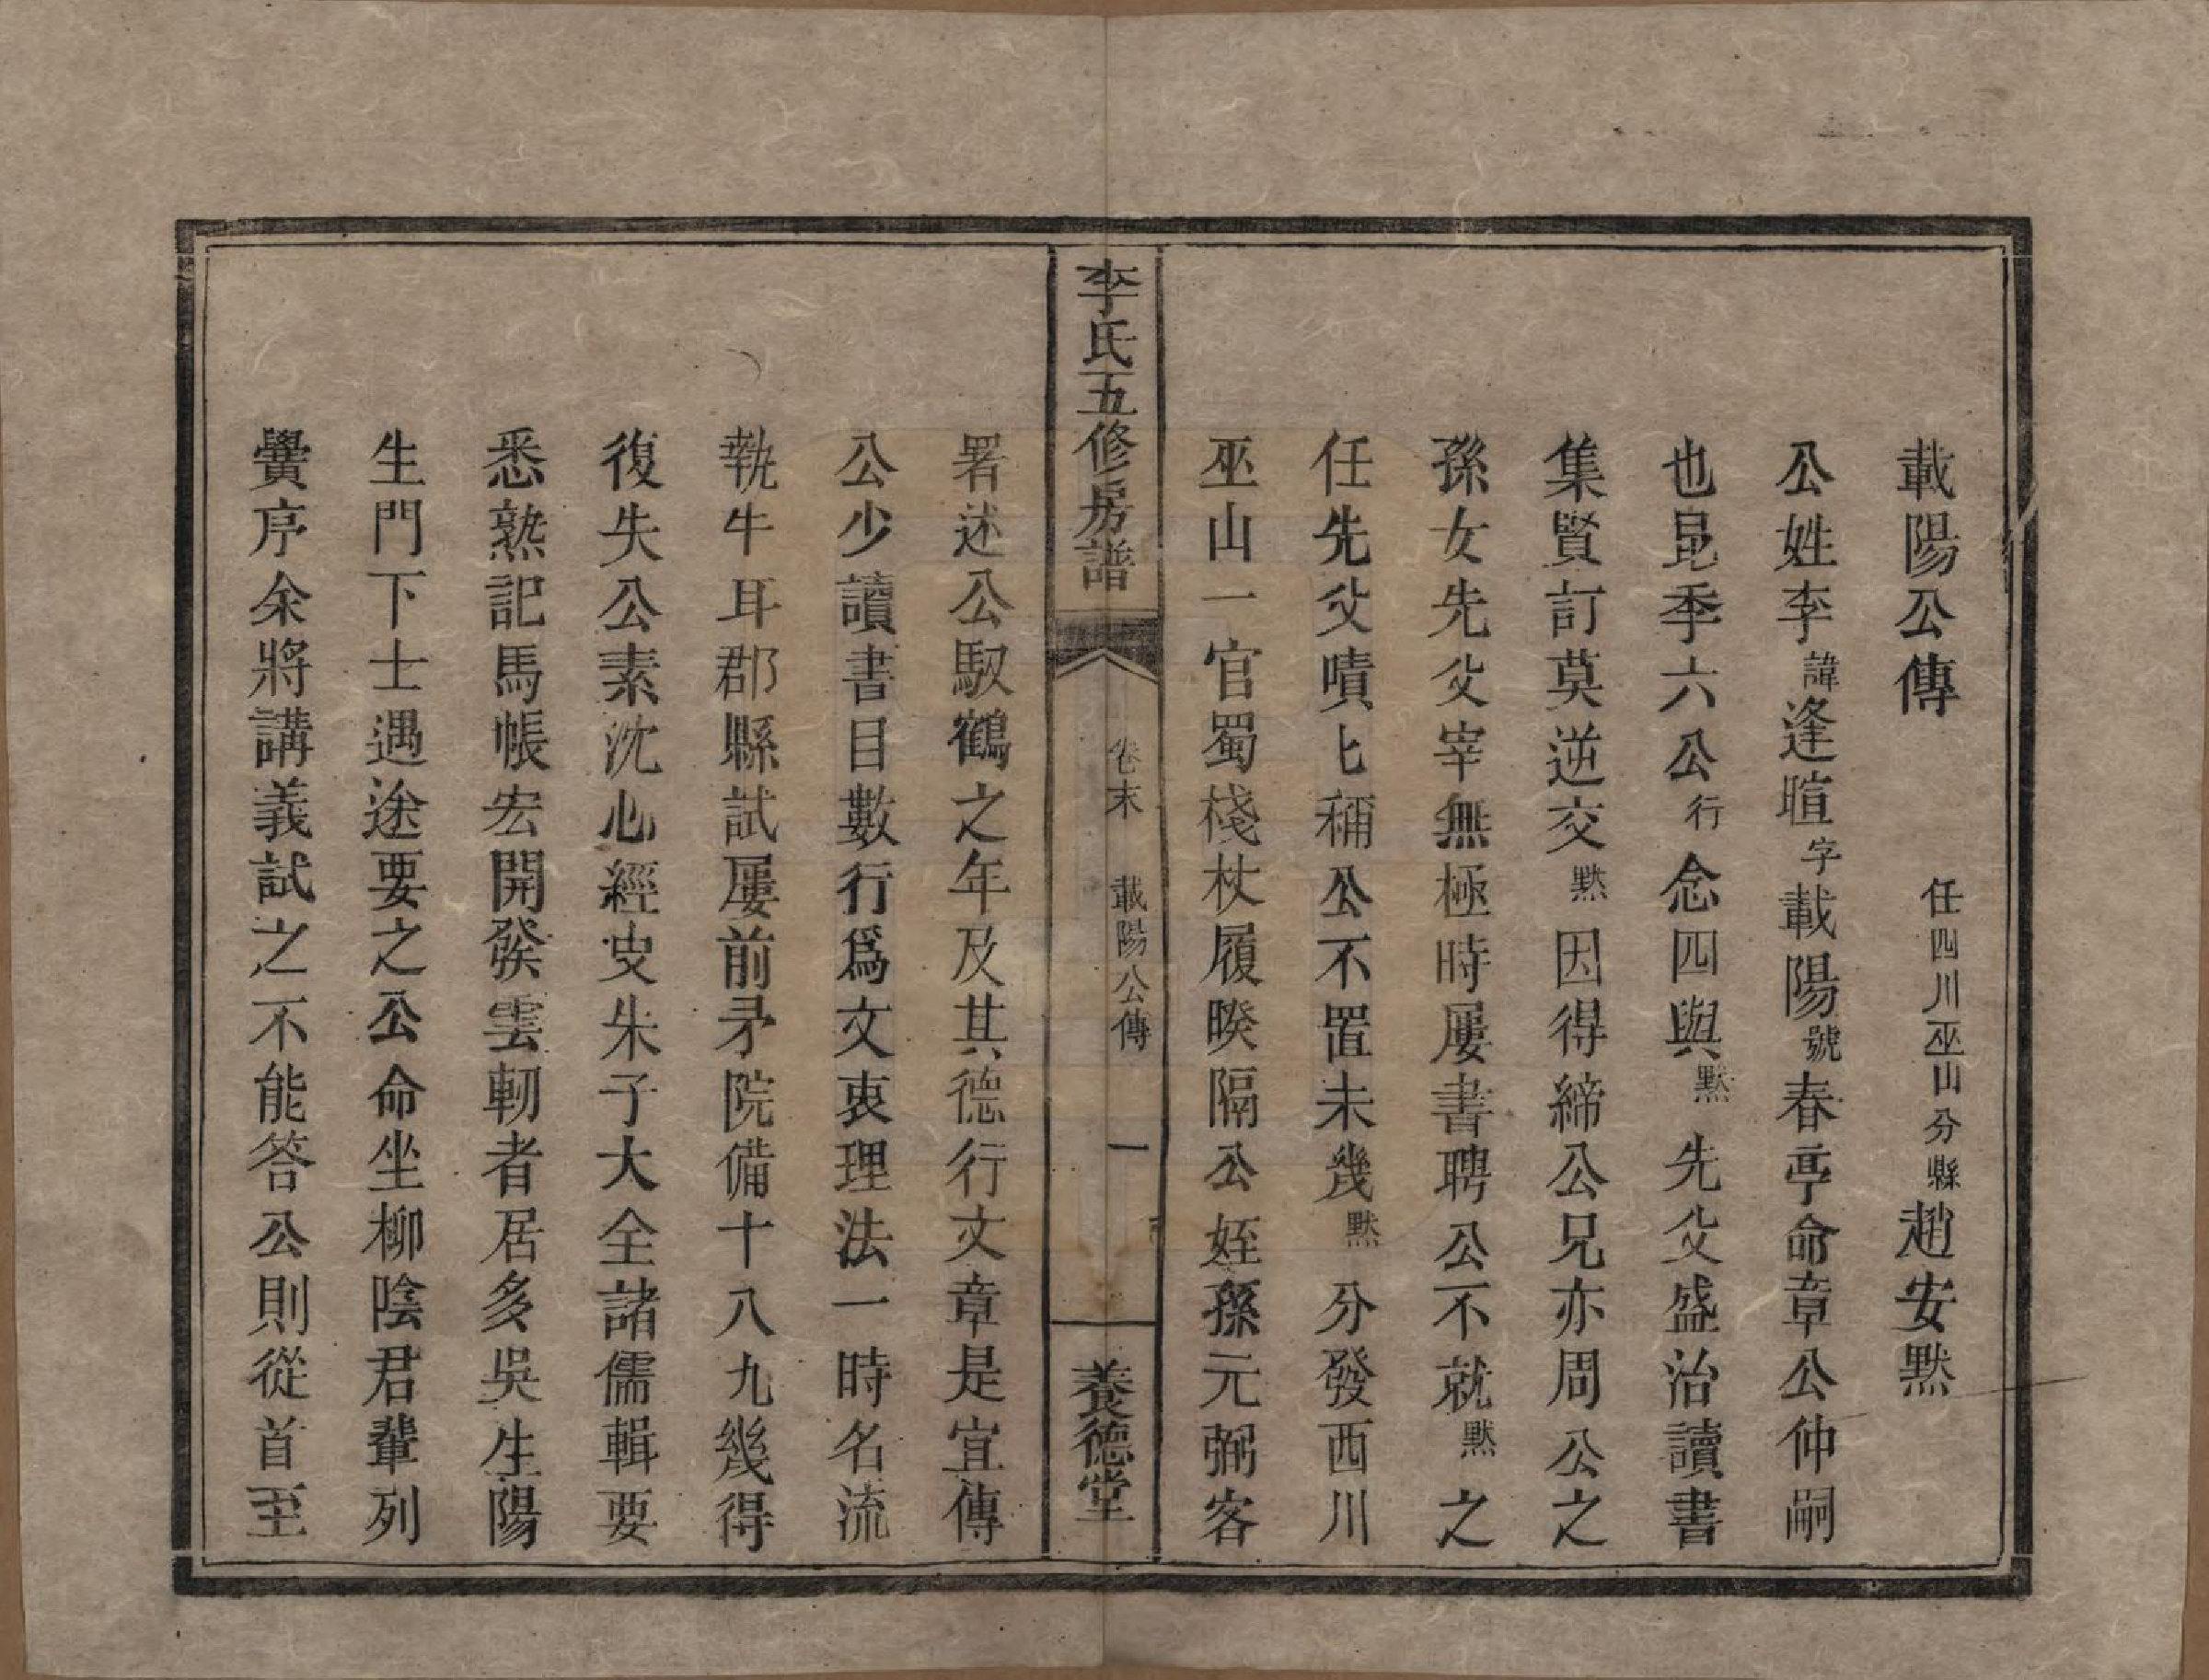 載陽公傳　任四川巫山分縣趙安黙
公姓李諱逢暄字載陽號春亭命章公仲嗣
也昆季六公行念四與黙先父盛治讀書
集賢訂莫逆交黙因得締公兄亦周公之
孫女先父宰無極時屢書聘公不就黙之
任先父嘖匕稱公不置未幾黙分發西川
巫山一官蜀棧杖履暌隔公姪孫元弼客
李氏五修房譜　卷末　載陽公傳　一　養德堂
署述公馭鶴之年及其德行文章是宜傳
公少讀書目數行行爲文衷理法一時名流
執牛耳郡縣試屢前矛院備十八九幾得
復失公素沈心經史朱子大全諸儒輯要
悉熟記馬帳宏開發雲軔者居多吳生陽
生門下士遇途要之公命坐柳陰君輩列
黌序余將講義試之不能答公則從首至